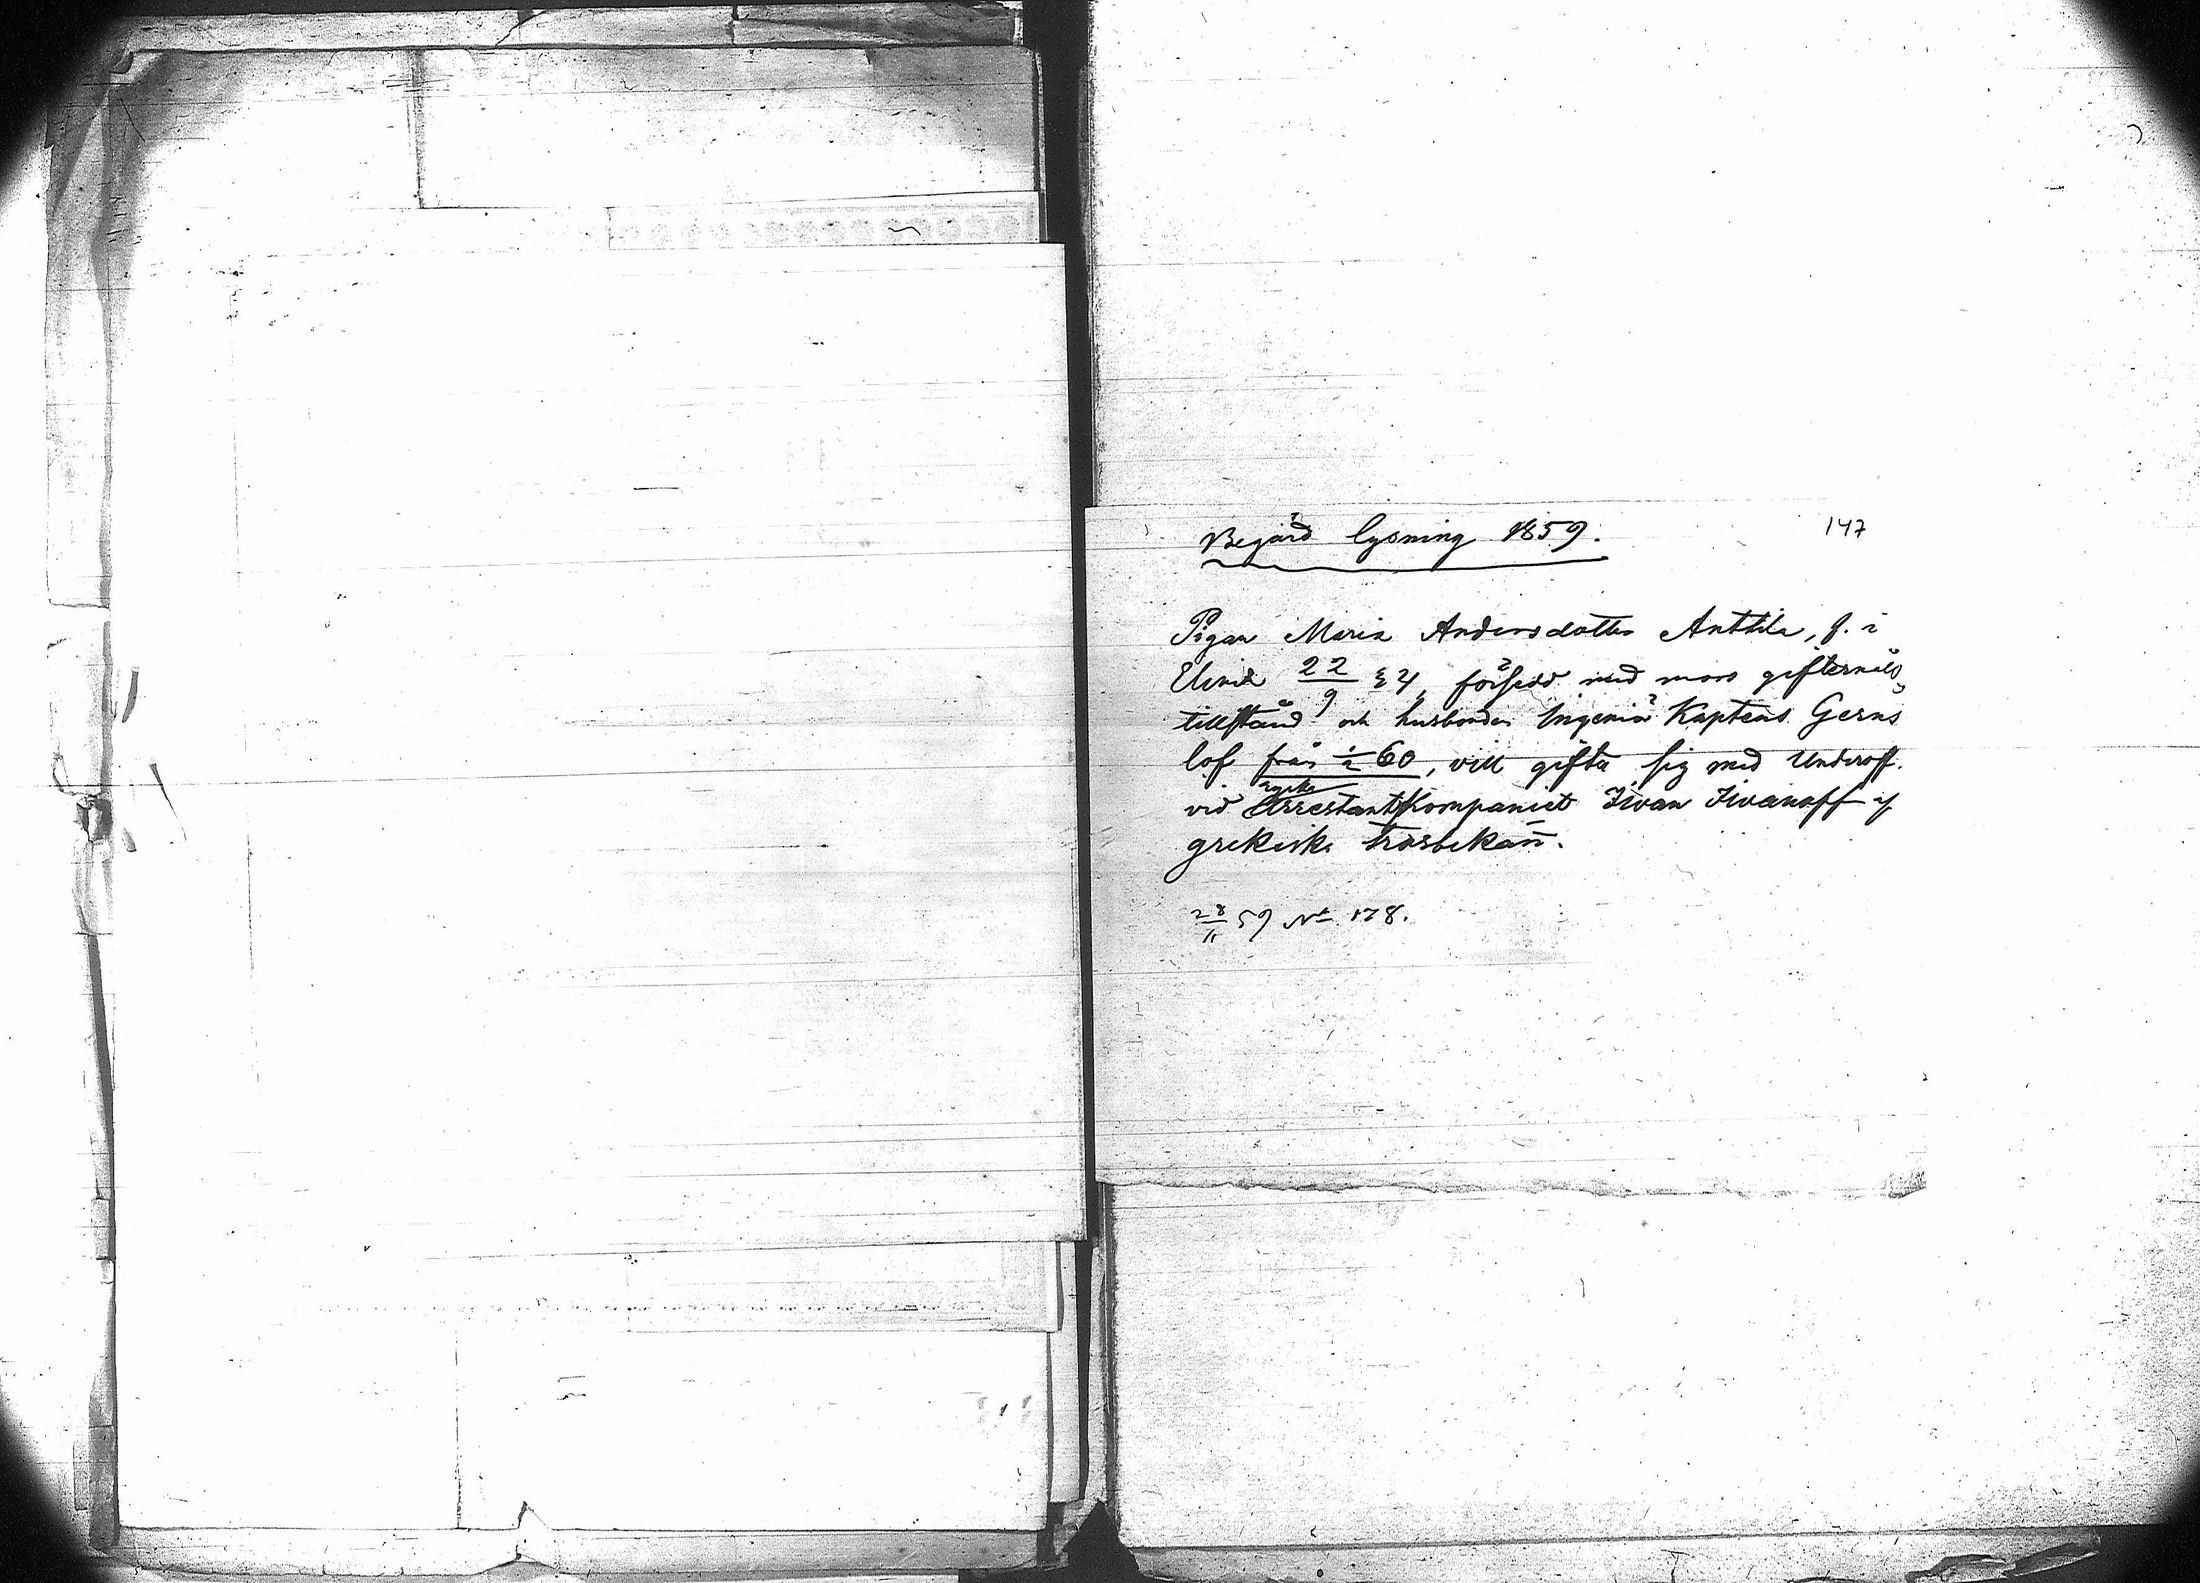 Begärd lysning 1859.
147
Pigan Maria Andersdotter Anttila, f. i
Elimä 22/9 24, försedd med mors giftermåls
tillstånd och husbondens Ingeniör Kaptens Gerns
lof från 1/2 60, vill gifta sig med Underoff.
ryska
vid Arrestantkompaniet Iwan Iwanoff af
grekiska trosbekän̄.
28/11 59 No 178.